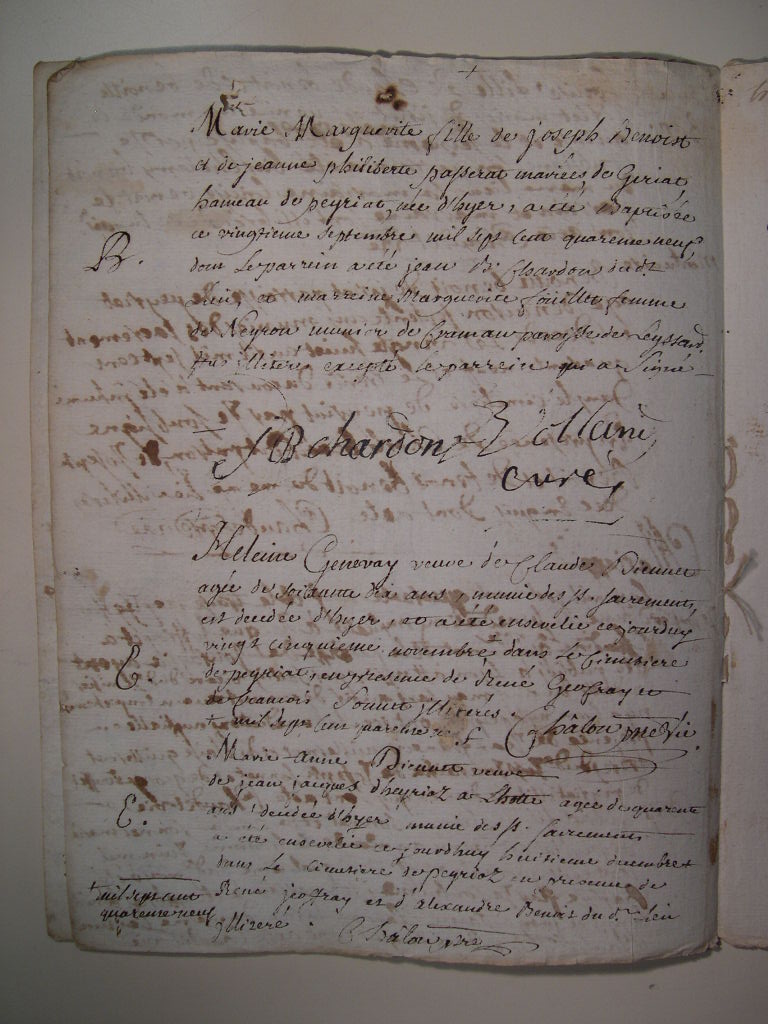 Marie Marguerite fille de joseph Benoist
et de jeanne philiberte passerat mariées de Geriat,
hameau de peyriat, née d'hyer, a été Baptisée
ce vingtieme septembre mil sept cent quarente neuf,
dont Le parrein a été jean B. Chardon dud.t
lieu et marreine Marguerite fouillou femme
de Neyron munier de Cramau paroisse de Leyssard,
tous illiterés excepté le parrein qui a Signé
B.
J B chardon
curé
Heleine Genevay veuve de Claude Diennet
agée de soixante dix ans, munie des ss. sacrements,
est decedée d'hyer, et a eté ensevelie ce jourduy
vingt cinquieme novembre + dans Le Cimetiere
de peyriat, en presence de René Geofray et
de francois illiterés.
+ mil sept cent quarente n.f Châlou
E.
Marie Anne Diennet veuve
de jean jacques d'heyrioz a Lhotte agée de quarente
ans decedée d'hyer munie des ss. sacrements
a été ensevelie ce jourdhuy huitieme decembre +
dans Le cimetiere de peyrioz en presence de
René jeoffray et d'alexandre Benoit du d.t lieu
illiteré. Châlou
E.
+ mil sept cent
quarente neuf